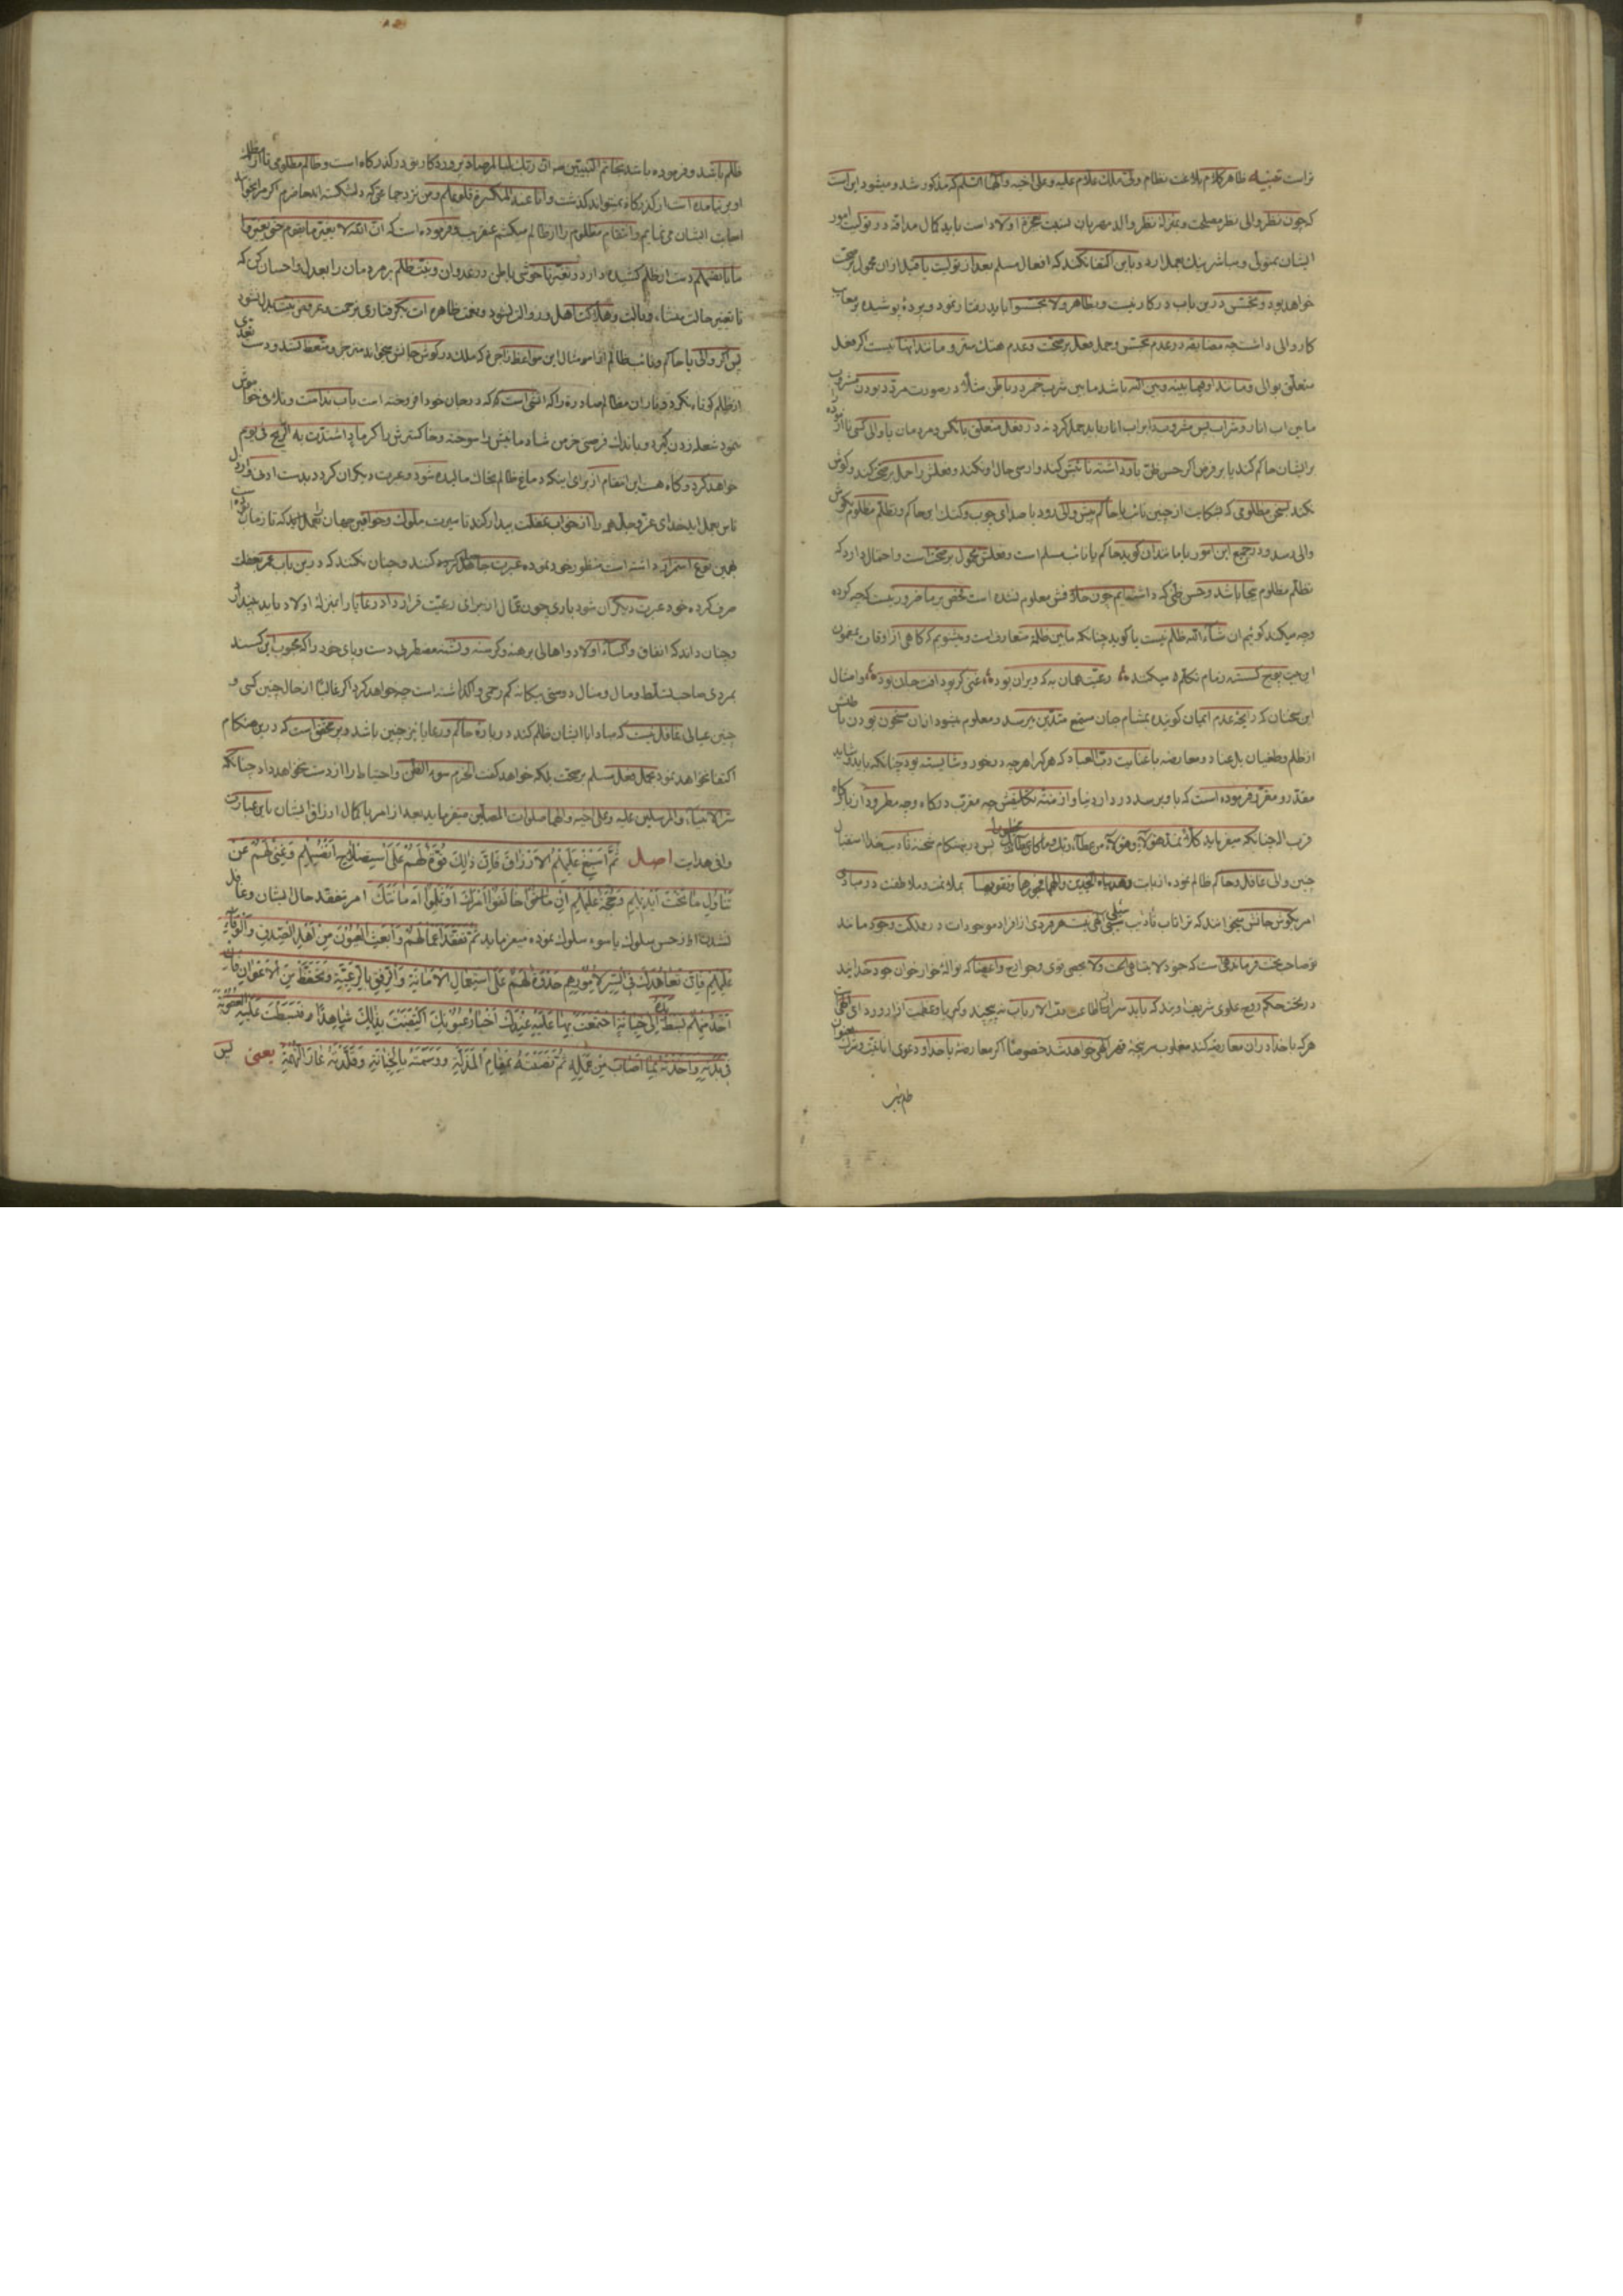 تراست تنبیه ظاهر کلام بلاغت نظام ولی ملک علام علیه و علی اخیه و آلهما السلم که مذکور شد و میشود این است
که چون نظر والی نظر مصلحت و بمنزلهٔ نظر والد مهربان نسبت اولاد است باید کمال مداقه در تولیت امور
ایشان بمتولی و مباشر نیک بعمل ارد و باین اکتفا نکند که افعال مسلم بعد از تولیت یا قبل از ان محمول بر صحت
خواهد بود و تجسس درین باب در کار نیست و بظاهر ولا تجسسوا باید رفتار نمود و پردهٔ پوشیده بر معایب
کار والی داشت چه مضایقه در عدم تجسس و حمل فعل بر صحت و عدم هتک ستر و مانند اینها نیست اگر فعل
متعلق بوالی و مانند او فیما بینه و بین الله باشد مابین شرب خمر در باطن مثلاً در صورت مردد بودن مشروب
مابین اب انار و شراب پس مشروب را بر اب انار باید حمل کرد نه در فعل متعلق بانکس و مردمان یا والی کسی را
برایشان حاکم کند یا بر فرض اگر حسن ظن باو داشته تفتیش کند وارسی حال او نکند و فعلش را حمل بر صحت کند و گوش
نکند سخن مظلومی که شکایت از چنین نائب یا حاکم پیش والی رود یا صدای چوب و کتک این حاکم و تظلم مظلوم بگوش
والی رسد و در جمیع این امور یا مانند ان گوید حاکم یا نائب مسلم است و فعلش محمول بر صحت است و احتمال دارد که
تظلم مظلوم بیجا باشد و حسن ظنی که داشته‌ایم چون خلافش معلوم نشده است تفحص بر ما ضرور نیست که چه کرده
وجه میکند گوئیم ان شاء الله ظلم نیست یا گوید چنانکه مابین ظلمه متعارف است و میشنویم که گاهی از اوقات بمضمون
این بیت گسسته زمام تکلم میکند رعیت همان به که ویران بود غنی گر بود افت جان بود و امثال
این سخنان که رایحهٔ عدم ایمان گوینده بمشام جان سمیع متدین میرسد و معلوم میشود از ان سخنان بودن باطنش
از ظلم و طغیان بل عناد و معارضه با عنایت رب العباد که هر کرا هر چه در خور و شایسته بود چنانکه باید و شاید
مقدر و مقرر فرموده است که باو برسد در دار دنیا و از منتهٔ تکالیفش چه مقرب درگاه و چه مطرود از بارگاه
قرب اله چنانکه میفرماید کلاً نمد هؤلاء و هؤلاء من عطاء ربک و ما کان عطاء ربک محظورا پس درینهنگام شحنهٔ تادیب خدا استقبال
چنین والی عاقل و حاکم ظالم نموده از باب و هدیناه النجدین و الهمها فجورها و تقویها بملایمت و ملاطفت در مبادی
امر بگوش جانش میخواند که تراتاب تادیب سیلی الهی نیست هر فردی از افراد موجودات در مملکت وجود مانند
تو صاحب تخت فرماندهی است که جنود لا یتناهی تحت ولا یحصی قوی و جوارح و اعضا که نواله خوار خوان جود خدایند
در تحت حکم رفیع علوی شریف اویند که باید سر از اطاعت رب الارباب نه پیچید و کبریا و عظمت ازار و ردای الهی است
هر که با خدا در ان معارضه کند مغلوب سر پنجهٔ قهر الهی خواهد شد خصوصاً اگر معارضه با خدا و دعوی
ظلم باشد و فرموده باشد بخاتم النبیین ص ان ربک لبالمرصاد پروردگار تو در گذرگاه است و ظالم مظلومی تا از مظلمهٔ
او بر نیامده است از گذرگاه نمیتواند گذشت و انا عند المنکسرة قلوبهم و من نزد جماعتی که دلشکسته اند حاضرم اگر مرا بخوانند
اجابت ایشان می نمایم و انتقام مظلوم را از ظالم میکشم عنقریب و فرموده است که ان الله لا یغیر ما بقوم حتی یغیروا
ما بانفسهم دست از ظلم کشیده دار و نعیم باطن در عدوان و نیت ظلم بر مردمان را بعدل و احسان کن که
تا تغییر حالت بشود
پس اگر والی یا حاکم و نائب ظالم از استماع مثال این مواعظ زاجره که ملک در گوش جانش میخواند منزجر و متعظ نشد و دست تعدی
از ظلم کوتاه نکرد و نیران مظالم صادره را که اتشی است که در جان خود افروخته است باب ندامت و تلافی خاموش
ننمود شعله زدن گیرد و باندک فرصتی خرمن شادمانیش را سوخته و خاکسترش را کرماد اشتدت به الریح فی یوم
خواهد کرد و گاه هست این انتقام از برای اینکه دماغ ظالم بخاک مالیده شود و عبرت دیگران گردد بدست ادنی و اراذل
ناس بعمل اید خدای عز و جل همه را از خواب غفلت بیدار کند تا سیرت ملوک و خواقین جهان که تا زمان
بهمین نوع استمرار داشته است منظور خود نموده عبرت کنند و چنان نکنند که درین باب عمر بغفلت
صرف کرده خود عبرت دیگران شود باری چون عمال از برای رعیت قرار داد رعایا را بمنزلهٔ اولاد باید پندارد
و چنان داند که انفاق و اکساء اولاد و اهالی برهنه و گرسنه و تشنه مضطر بی دست و پای خود را که محبوب این کسند
بمردی صاحب تسلط و مال و منال دوستی بیگانه کم رحمی واگذاشته است چه خواهد کرد اگر غالباً از حال چنین کسی و
چنین عیالی غافل نیست که مبادا با ایشان ظلم کند در بارهٔ حاکم و رعایا نیز چنین باشد و پر محقق است که درین هنگام
اکتفا نخواهد نمود بحمل فعل مسلم بر صحت بلکه خواهد گفت الحزم سوء الظن و احتیاط را از دست نخواهد داد چنانکه
سر الانبیاء و المرسلین علیه و علی اخیه و الهما صلوات المصلین میفرماید بعد از امر باکمال ارزاق ایشان باین عبارت
وافی هدایت اصل ثُمَّ أَسْبِغْ عَلَيْهِمُ الْأَرْزَاقَ فَإِنَّ ذَلِكَ قُوَّةٌ لَهُمْ عَلَى اسْتِصْلَاحِ أَنْفُسِهِمْ وَغِنًى لَهُمْ عَنْ
تَنَاوُلِ مَا تَحْتَ أَيْدِيهِمْ وَحُجَّةٌ عَلَيْهِمْ إِنْ خَالَفُوا أَمْرَكَ أَوْ ثَلَمُوا أَمَانَتَكَ امر بتفقد حال ایشان و غافل
نشدن از حسن سلوک یا سوء سلوک نموده میفرماید ثُمَّ تَفَقَّدْ أَعْمَالَهُمْ وَابْعَثِ الْعُيُونَ مِنْ أَهْلِ الصِّدْقِ وَالْوَفَاءِ
عَلَيْهِمْ فَإِنَّ تَعَاهُدَكَ فِي السِّرِّ لِأُمُورِهِمْ حَدْوَةٌ لَهُمْ عَلَى اسْتِعْمَالِ الْأَمَانَةِ وَالرِّفْقِ بِالرَّعِيَّةِ وَتَحَفَّظْ مِنَ الْأَعْوَانِ فَإِنْ
أَحَدٌ مِنْهُمْ بَسَطَ يَدَهُ إِلَى خِيَانَةٍ اجْتَمَعَتْ بِهَا عَلَيْهِ عِنْدَكَ أَخْبَارُ عُيُونِكَ اكْتَفَيْتَ بِذَلِكَ شَاهِدًا فَبَسَطْتَ عَلَيْهِ الْعُقُوبَةَ
فِي بَدَنِهِ وَأَخَذْتَهُ بِمَا أَصَابَ مِنْ عَمَلِهِ ثُمَّ نَصَبْتَهُ بِمَقَامِ الْمَذَلَّةِ وَوَسَمْتَهُ بِالْخِيَانَةِ وَقَلَّدْتَهُ عَارَ التُّهَمَةِ یعنی پس